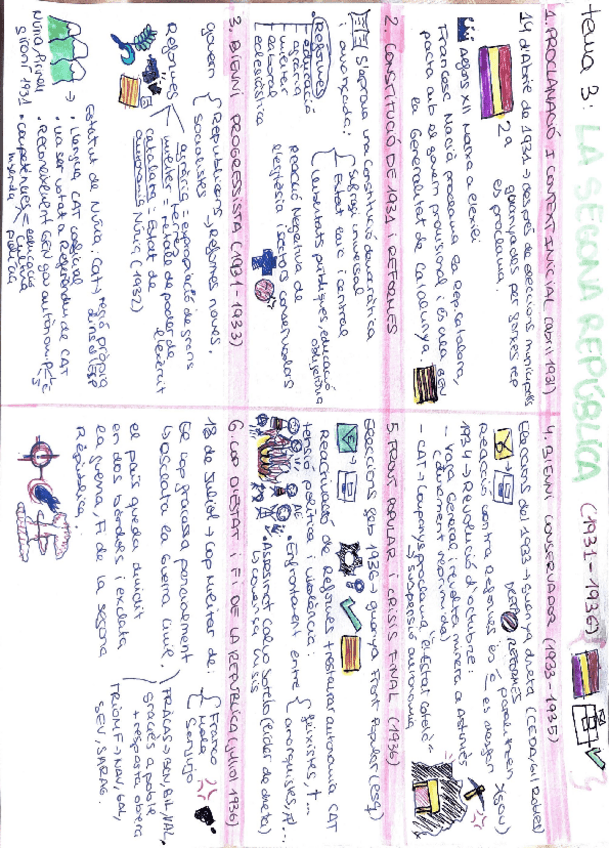 tema 3: LA SEGONA REPÚBLICA (1931-1936)
1. PROCLAMACIÓ I CONTEXT INICIAL (abril 1931)
14 d'Abril de 1931 → després de eleccions municipals
guanyades per forces rep
es proclama.
2a
Alfons XII marxa a l'exili
Francesc Macià proclama la Rep. catalana,
pacta amb es govern provisional i es crea
la Generalitat de Catalunya.
GEN
2. CONSTITUCIÓ DE 1931 i REFORMES
S'aprova una constitució democràtica
i avançada:
Sufragi universal
Estat laic i central
Llibertats polítiques, educació
obligatòria
Reformes
educació
agrària
militar
laboral
eclesiàstica
Reacció Negativa de
l'església i sectors conservadors
3. BIENNI PROGRESSISTA (1931-1933)
govern
Republicans
socialistes
→ Reformes noves.
Reformes
agrària = expropiació de grans
terres
militar = retallada de poder de
l'exèrcit
catalana = Estatut de
autonomia Núria (1932)
Núria, Pirineu
Gironí 1931
Estatut de Núria: Cat → regió pròpia
dins d'ESP
• Llengua CAT cooficial
• Va ser votat a Referèndum de CAT
• Competències = educació
cultura
policia
4. BIENNI CONSERVADOR (1933-1935)
Eleccions del 1933 → guanya dreta (CEDA, Gil Robles)
Reacció contra reformes
REFORMES
1934 → Revolució d'octubre:
- Vaga General i revolta minera a Astúries
(durament reprimida)
- CAT → Companys proclama "l'Estat Català"
↳ suspensió autonomia
5. FRONT POPULAR i CRISIS FINAL (1936)
Eleccions feb 1936 → guanya Front Popular (esq)
Reactivació de Reformes i restaurar autonomia CAT
tensió política i violència:
• Enfrontament entre
feixistes, t...
anarquistes, pl...
• Assassinat Calvo Sotelo (líder de dreta)
↳ comença crisis
6. COP D'ESTAT i FI DE LA REPÚBLICA (juliol 1936)
18 de Juliol → Cop militar de:
Franco
Mola
Sanjurjo
El cop fracassa parcialment
↳ esclata la Guerra Civil.
FRACÀS → BCN, BIL, VAL,
gràcies a poble
+ resposta obrera
TRIOMF → NAV, GAL,
SEV, SARAG.
el país queda dividit
en dos bàndols i esclata
la guerra, Fi de la segona
República.